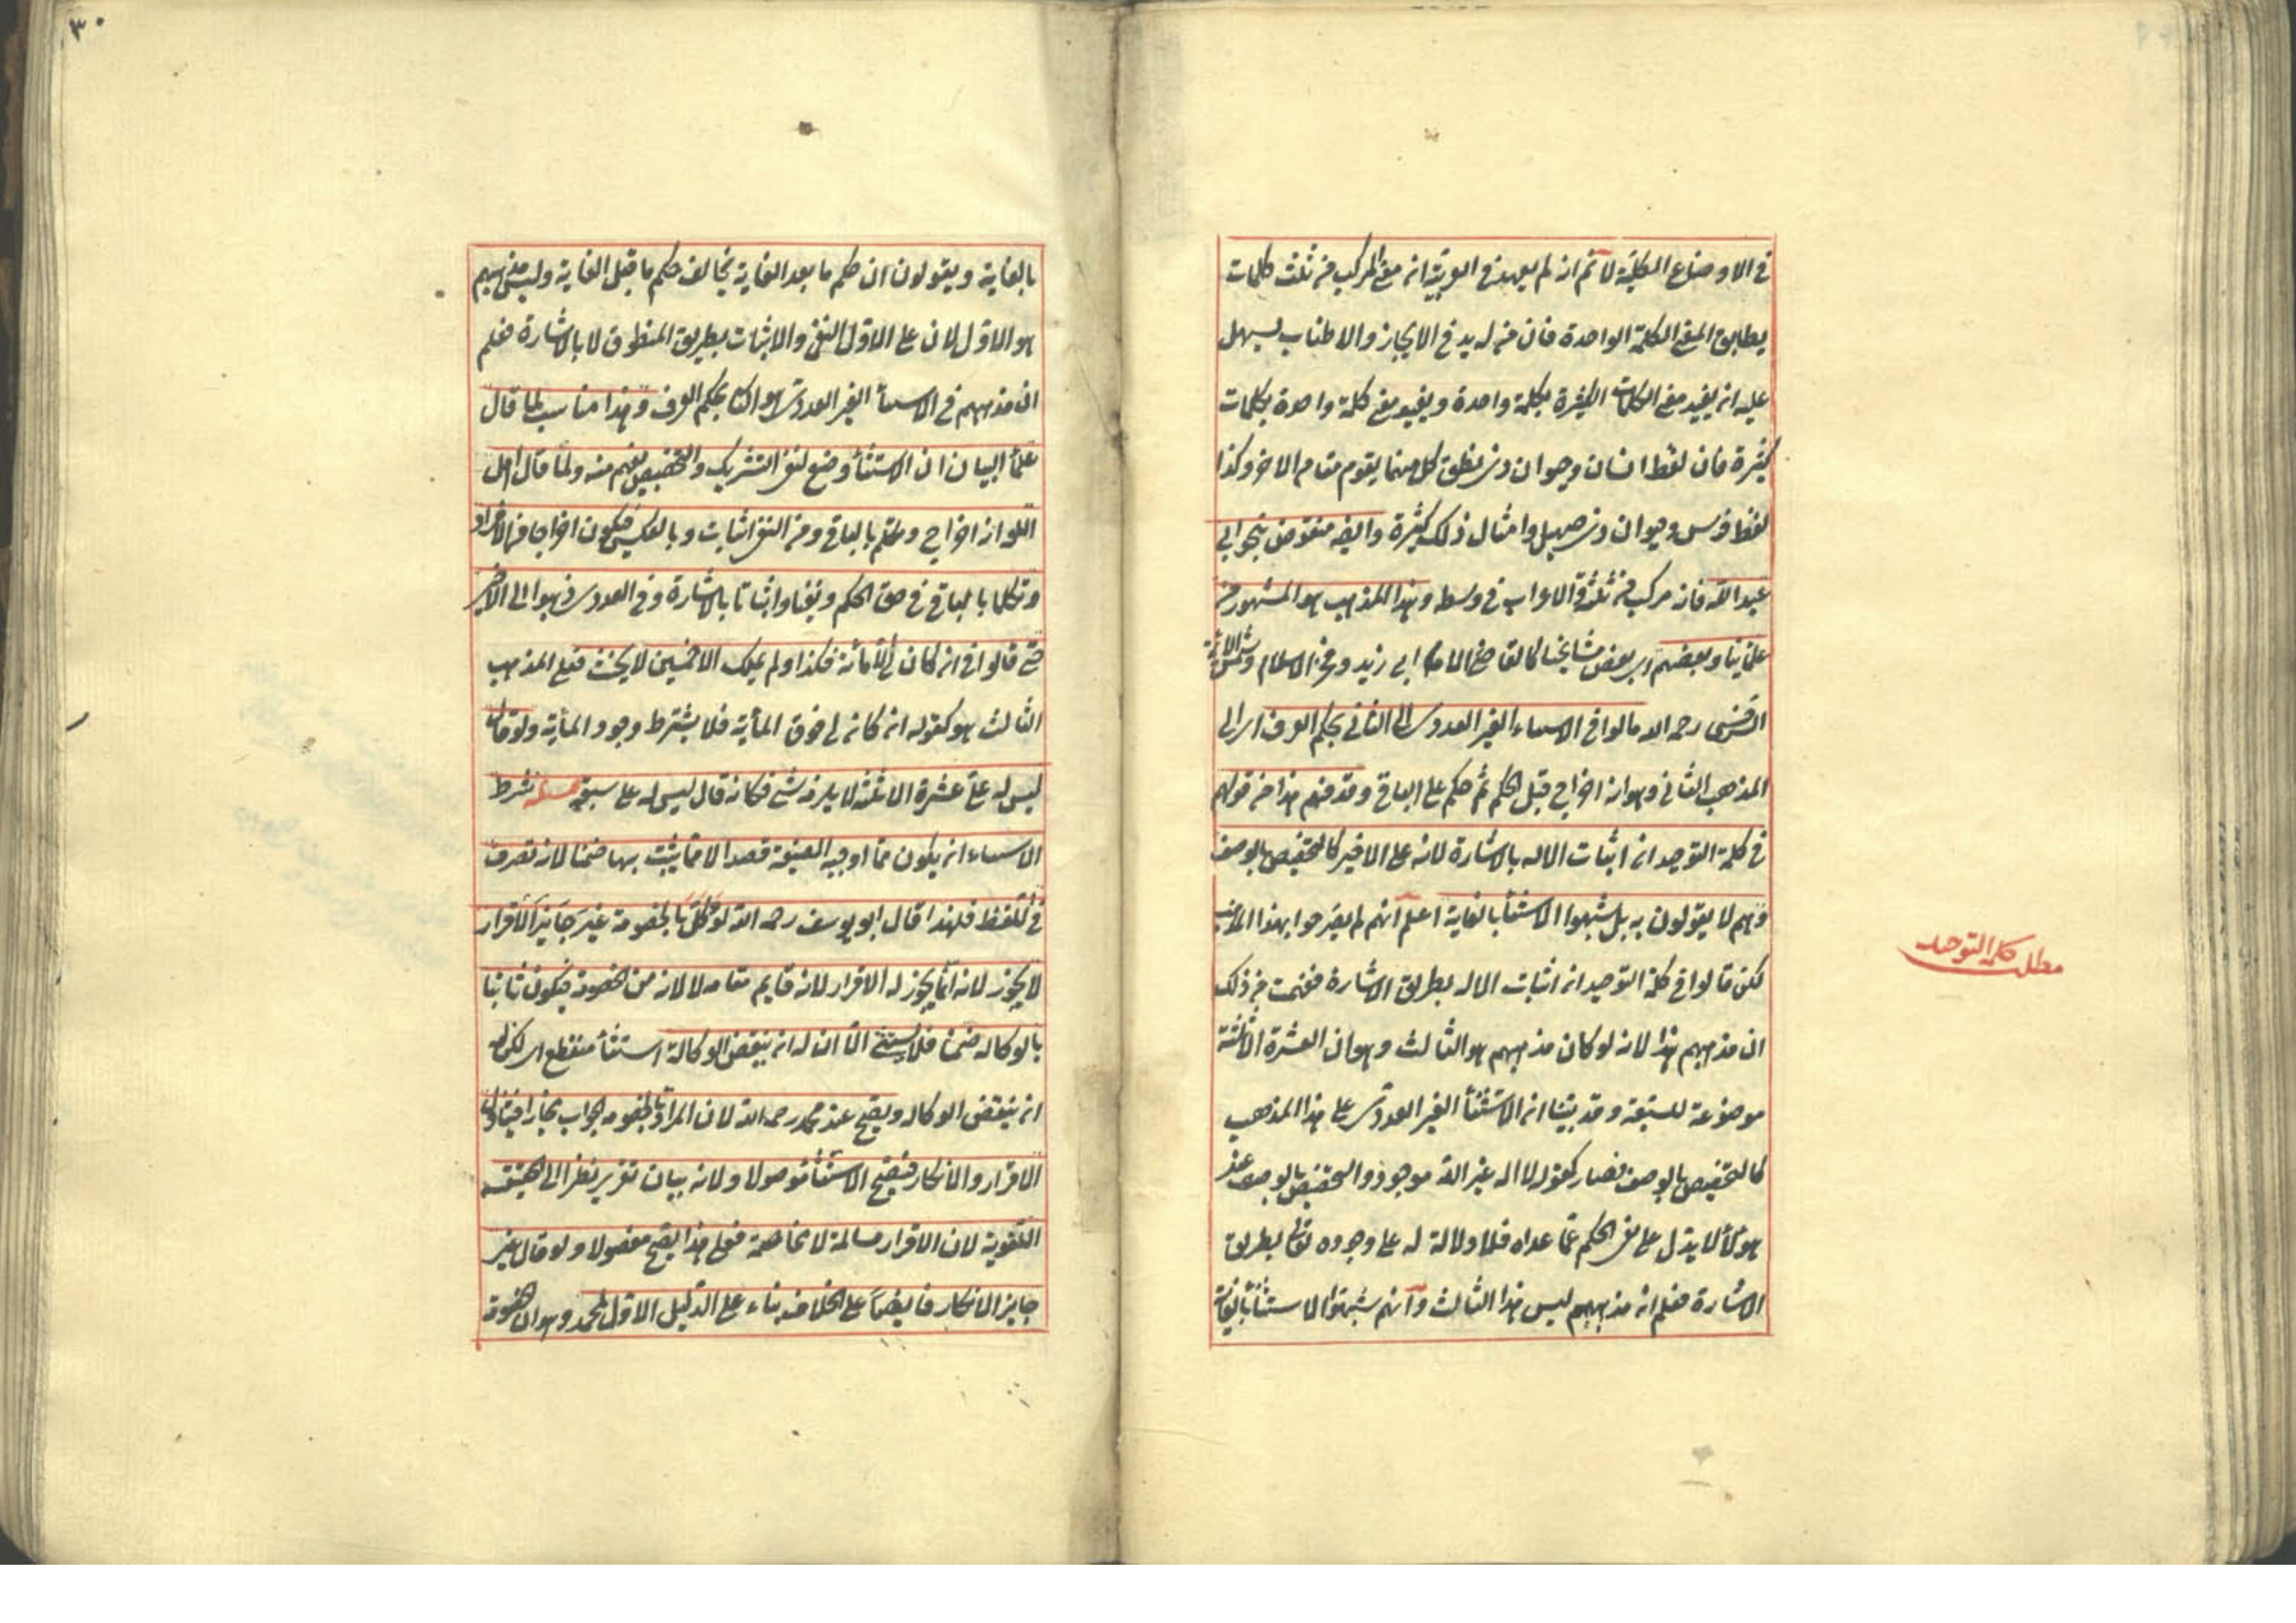 في الاوضاع الكلية لا نم انه لم يعهد في العربية ان معنى المركب من ثلث كلمات
يطابق المعنى الكلمة الواحدة فان من له يد في الايجاز والاطناب يسهل
عليه ان يفيد معنى الكلمات الكثيرة بكلمة واحدة ويفيد معنى كلمة واحدة بكلمات
كثيرة فان لفظ انسان وحيوان ذي نطق كل منهما يقوم مقام الاخر وكذا
لفظ فرس وحيوان ذي صهيل وامثال ذلك كثيرة وايضا منقوض بنحو ابي
عبد الله فانه مركب من ثلثة والاعراب في وسطه وهذا المذهب هو المشهور من
علمائنا وبعضهم اي بعض مشايخنا كالقاضي الامام ابي زيد وفخر الاسلام وشمس الائمة
السرخسي رحمه الله مالوا في الاسماء الغير العددي الى الثاني بحكم العرف اي الى
المذهب الثاني وهو انه اخراج قبل الحكم ثم حكم على الباقي وقد فهم هذا من قولهم
في كلمة التوحيد ان اثبات الاله بالاشارة لانه على الاخير كالتخصيص بالوصف
وهم لا يقولون به بل شبهوا الاستثنأ بالغاية اعلم انهم لم يصرحوا بهذا المذهب
لكن قالوا في كلمة التوحيد ان اثبات الاله بطريق الاشارة ففهمت من ذلك
ان مذهبهم هذا لانه لو كان مذهبهم هو الثالث وهو ان العشرة الا ثلثة
موضوعة للسبعة وقد بينا ان الاستثنأ الغير العددي على هذا المذهب
كالتخصيص بالوصف فصار كقوله لا اله غير الله موجود والتخصيص بالوصف عند
هؤلأ لا يدل على نفي الحكم عما عداه فلا دلالة له على وجوده تعالى بطريق
الاشارة فعلم ان مذهبهم ليس هذا الثالث وانهم شبهوا الاستثنأ بالغاية
مطلب كلمة التوحيد
٣٠
بالغاية ويقولون ان حكم ما بعد الغاية يخالف حكم ما قبل الغاية وليس مذهبهم
هو الاول لان على الاول النفي والاثبات بطريق المنطوق لا بالاشارة فعلم
ان مذهبهم في الاسمأ الغير العددي هو الثاني بحكم العرف وهذا مناسب لما قال
علمأ البيان ان الاستثنأ وضع لنفي التشريك والتخصيص يفهم منه ولما قال اهل
اللغة انه اخراج وتكلم بالباقي ومن النفي اثبات وبالعكس فيكون اخراجا من الافراد
وتكلما بالباقي في حق الحكم ونفيا واثباتا بالاشارة وفي العددي ذهبوا الى الاخير
حتى قالوا في ان كان لي الا مائة فكذا ولم يملك الا خمسين لا يحنث فعلى المذهب
الثالث هو كقوله ان كان لي فوق المأية فلا يشترط وجود المأية ولو قال
ليس له علي عشرة الا ثلثة لا يلزمه شئ فكانه قال ليس له علي سبعة مسئلة شرط
الاستثناء ان يكون مما اوجبه الصيغة قصدا لا مما يثبت بها ضمنا لانه تصرف
في اللفظ فلهذا قال ابو يوسف رحمه الله لو وكل بالخصومة غير جايز الاقرار
لا يجوز لانه انما يجوز له الاقرار لانه قايم مقامه لا لانه من الخصومة فيكون ثابتا
بالوكالة ضمنا فلا يستثنى الا ان له ان ينقض الوكالة استثنأ منقطع اي لكن له
ان ينقض الوكالة ويصح عند محمد رحمه الله لان المراد بالخصومة الجواب مجازا فيتناول
الاقرار والانكار فيصح الاستثنأ موصولا ولانه بيان تقرير نظرا الى الحقيقة
اللغوية لان الاقرار مسالمة لا مخاصمة فعلى هذا يصح مفصولا ولو قال غير
جايز الانكار فايضا على الخلاف بناء على الدليل الاول لمحمد وهو ان الخصومة